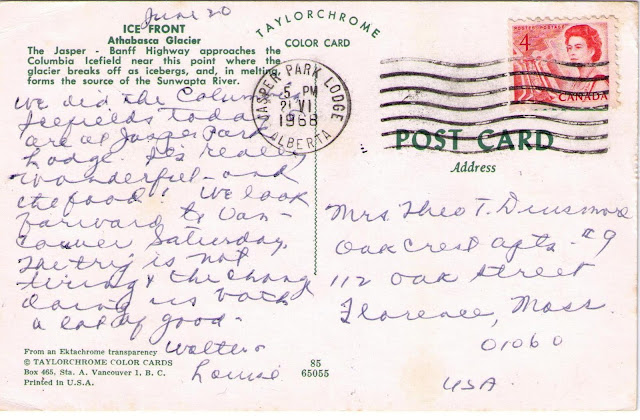 June 20
ICE FRONT
Athabasca Glacier
The Jasper - Banff Highway approaches the
Columbia Icefield near this point where the
glacier breaks off as icebergs, and, in melting
forms the source of the Sunwapta River.
TAYLORCHROME
COLOR CARD
JASPER PARK LODGE
5 PM
21 VI
1968
ALBERTA
POSTES POSTAGE
4
CANADA
POST CARD
Address
We did the Columbia
Icefields today
are at Jasper Park
Lodge. It's really
wonderful - and
the food! We look
forward to Van-
couver Saturday.
The trip is not
tiring & the change
doing us both
a lot of good -
Walter
Louise
Mrs. Theo T. Dinsmore
Oak Crest Apts. #9
112 Oak Street
Florence, Mass.
01060
USA.
From an Ektachrome transparency
© TAYLORCHROME COLOR CARDS
Box 465. Sta. A. Vancouver 1, B. C.
Printed in U.S.A.
85
65055